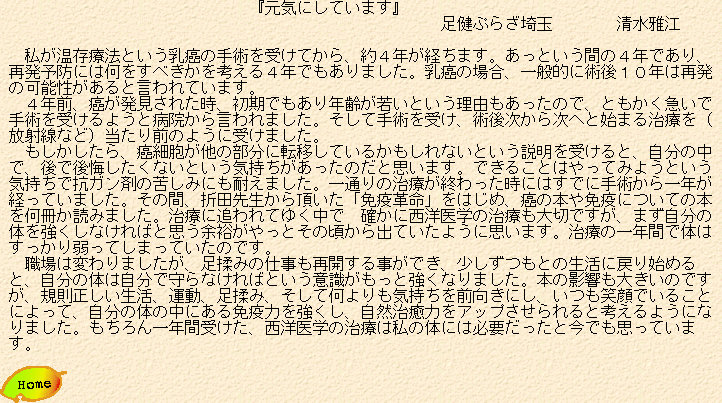 『元気にしています』
足健ぷらざ埼玉　　　　清水雅江
私が温存療法という乳癌の手術を受けてから、約４年が経ちます。あっという間の４年であり、
再発予防には何をすべきかを考える４年でもありました。乳癌の場合、一般的に術後１０年は再発
の可能性があると言われています。
４年前、癌が発見された時、初期でもあり年齢が若いという理由もあったので、ともかく急いで
手術を受けるようと病院から言われました。そして手術を受け、術後次から次へと始まる治療を（
放射線など）当たり前のように受けました。
もしかしたら、癌細胞が他の部分に転移しているかもしれないという説明を受けると、自分の中
で、後で後悔したくないという気持ちがあったのだと思います。できることはやってみようという
気持ちで抗ガン剤の苦しみにも耐えました。一通りの治療が終わった時にはすでに手術から一年が
経っていました。その間、折田先生から頂いた「免疫革命」をはじめ、癌の本や免疫についての本
を何冊か読みました。治療に追われてゆく中で　確かに西洋医学の治療も大切ですが、まず自分の
体を強くしなければと思う余裕がやっとその頃から出ていたように思います。治療の一年間で体は
すっかり弱ってしまっていたのです。
職場は変わりましたが、足揉みの仕事も再開する事ができ、少しずつもとの生活に戻り始める
と、自分の体は自分で守らなければという意識がもっと強くなりました。本の影響も大きいのです
が、規則正しい生活、運動、足揉み、そして何よりも気持ちを前向きにし、いつも笑顔でいること
によって、自分の体の中にある免疫力を強くし、自然治癒力をアップさせられると考えるようにな
りました。もちろん一年間受けた、西洋医学の治療は私の体には必要だったと今でも思っていま
す。
Home